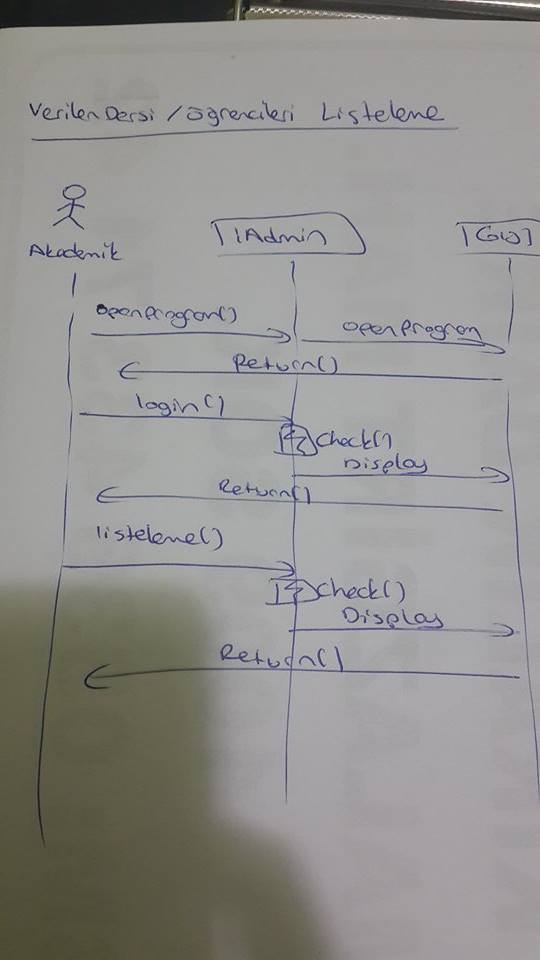 Verilen Dersi / öğrencileri Listeleme
Akademik
IAdmin
openprogram()
openprogram
Return()
login()
Check()
Display
Return()
listeleme()
Check()
Display
Return()